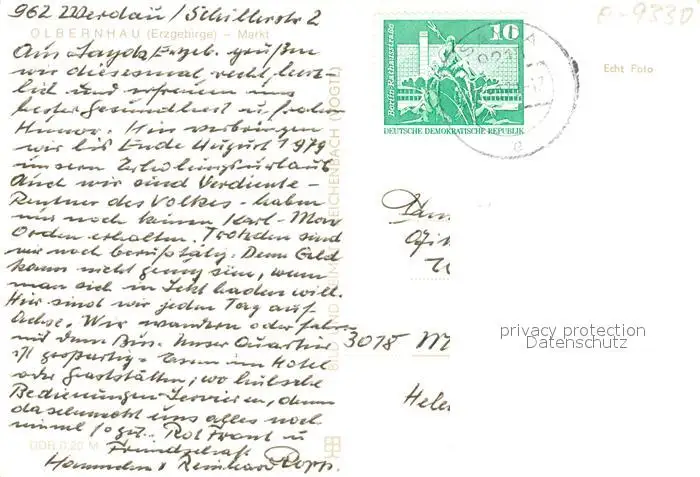 962 Werdau / Schillerstr 2
OLBERNHAU (Erzgebirge) – Markt
Aus Sayda/Erzgeb. grüßen
wir diesesmal, recht herz-
lich und erfreuen uns
bester Gesundheit u. frohen
Humor. Hier verbringen
wir bis Ende August 1979
unsern Erholungsurlaub
Auch wir sind Verdiente-
Rentner des Volkes - haben
nur noch keinen Karl-Marx
Orden erhalten. Trotzdem sind
wir noch berufstätig. Denn Geld
kann nicht genug sein, wenn
man sich in Sekt baden will.
Hier sind wir jeden Tag auf
Achse. Wir wandern oder fahren
mit dem Bus. Unser Quartier
ist großartig. Essen im Hotel
oder Gaststätten, wo hübsche
Bedienungen servieren, denn
da schmeckt uns alles noch
einmal so gut. Rot Front u
Freundschaft
Reinhard Popp.
DDR 0,20 M
REICHENBACH (VOGTL)
10
Berlin, Rathausstraße
DEUTSCHE DEMOKRATISCHE REPUBLIK
SAYDA
Echt Foto
3018
Hele
privacy protection
Datenschutz